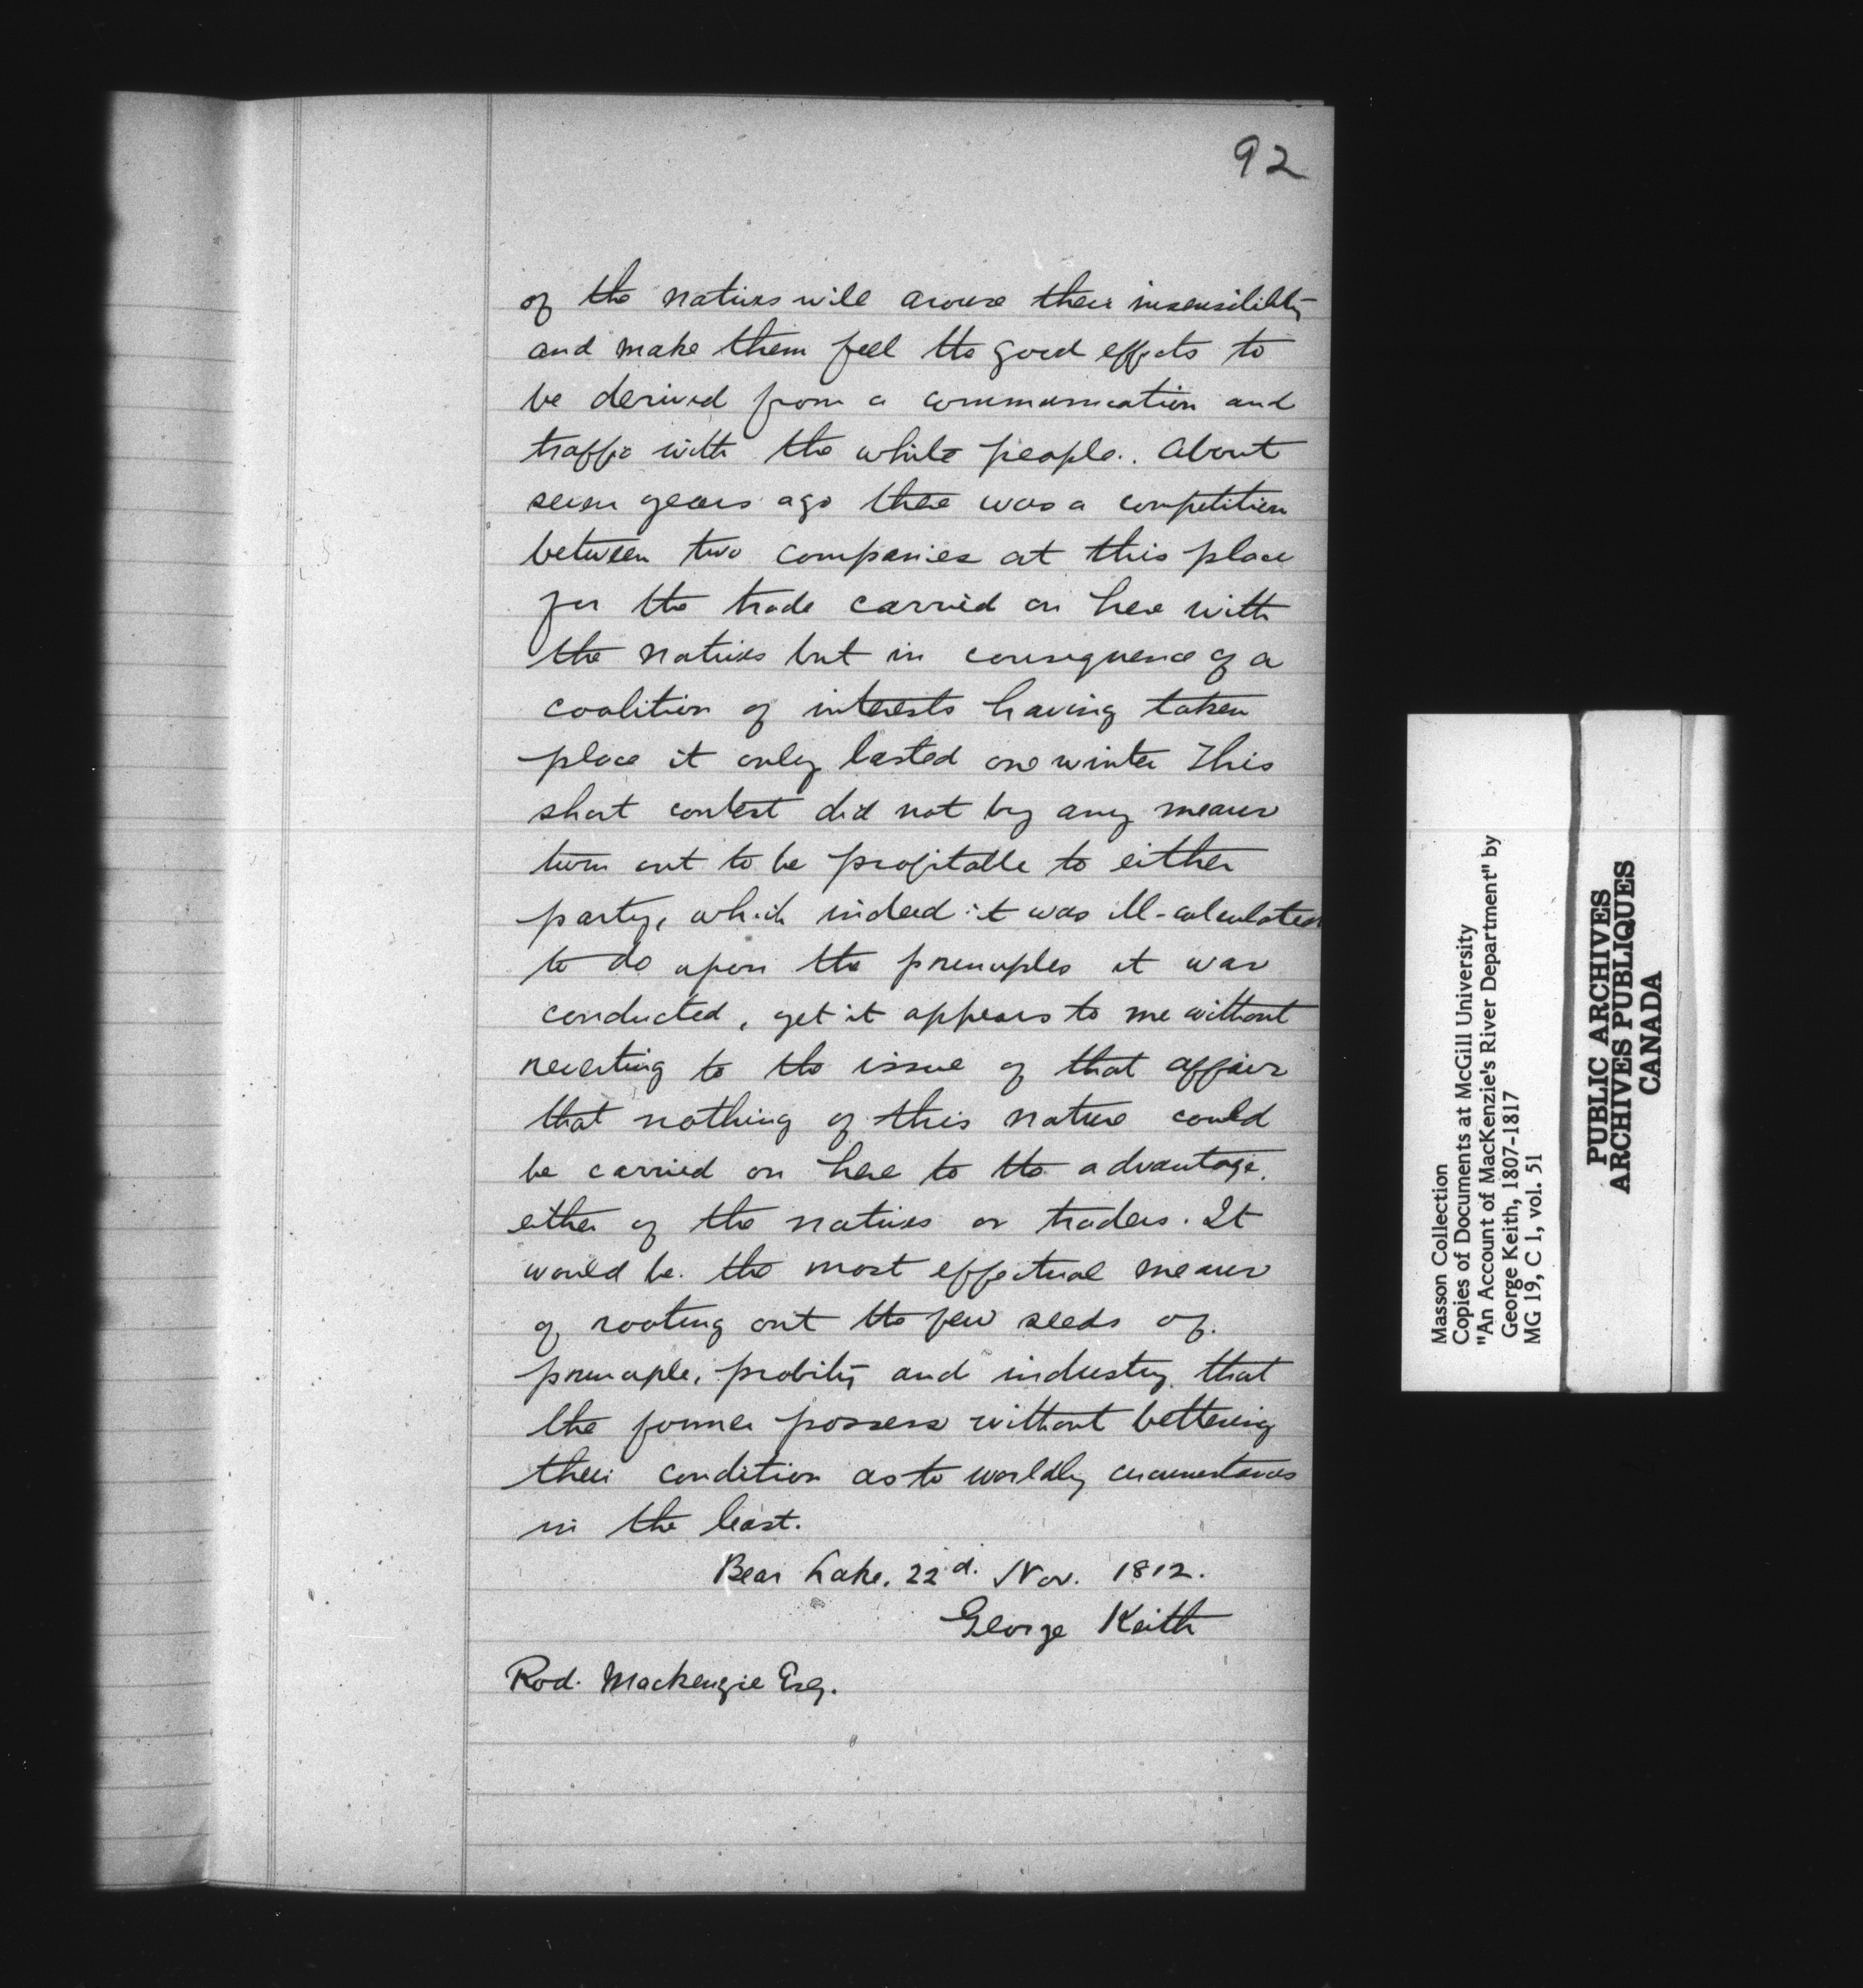 92
of the natives will arouse their insensibility
and make them feel the good effects to
be derived from a communication and
traffic with the white people. About
seven years ago there was a competition
between two companies at this place
for the trade carried on here with
the natives but in consequence of a
coalition of interests having taken
place it only lasted one winter This
short contest did not by any means
turn out to be profitable to either
party, which indeed it was ill-calculated
to do upon the principles it was
conducted, yet it appears to me without
reverting to the issue of that affair
that nothing of this nature could
be carried on here to the advantage.
either of the natives or traders. It
would be the most effectual means
of rooting out the few seeds of.
principle, probity and industry that
the former possess without bettering
their condition as to worldly circumstances
in the least.
Bear Lake, 22d. Nov. 1812.
George Keith
Rod. Mackenzie Esq.
Masson Collection
Copies of Documents at McGill University
"An Account of MacKenzie's River Department" by
George Keith, 1807-1817
MG 19, C 1, vol. 51
PUBLIC ARCHIVES
ARCHIVES PUBLIQUES
CANADA